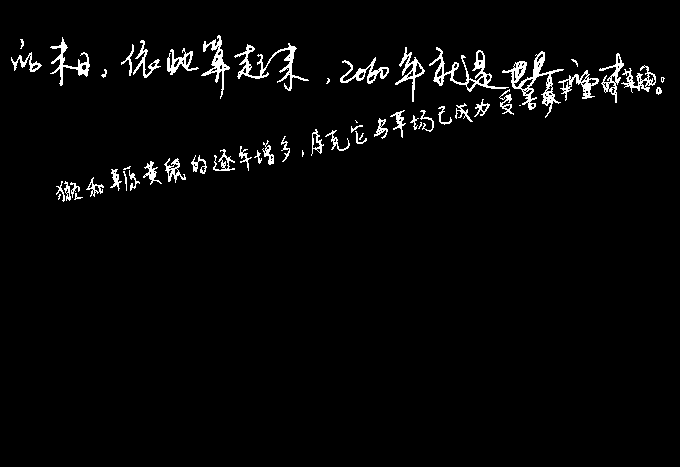 的末日，依此算起来，2060年就是世界的末日。
獭和草原黄鼠的逐年增多，库克它乌草场已成为受害最严重的草场。